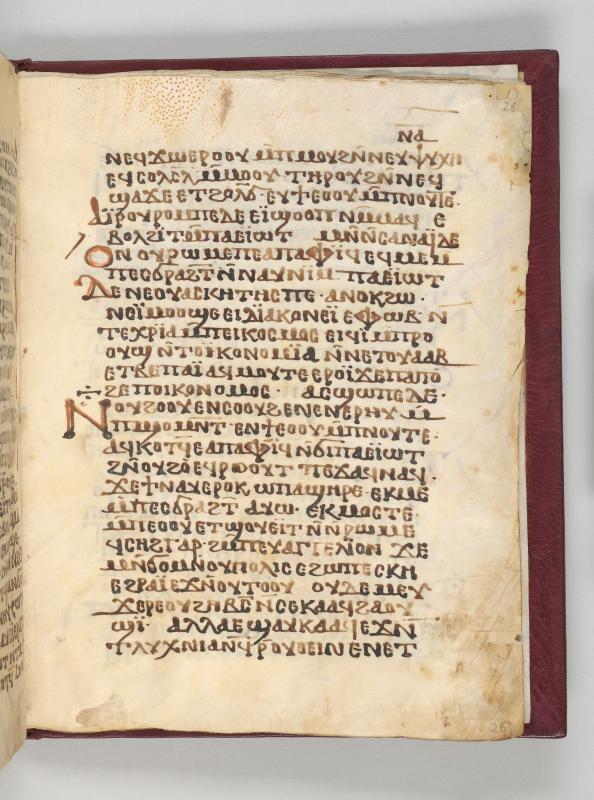 ⲛⲁ
ⲛⲉϥϫⲱⲉⲣⲟⲟⲩ ⲙ̄ⲡⲙⲟⲩϩⲛ̄ⲛⲉⲩⲯⲩⲭⲏ
ⲉϥⲥⲟⲗⲥⲗ̄ ⲙ̄ⲙⲟⲟⲩ ⲧⲏⲣⲟⲩϩⲛ̄ⲛⲉϥ
ϣⲁϫⲉ ⲉⲧϩⲟⲗϭ̄· ⲉⲩϯⲉⲟⲟⲩ ⲙ̄ⲡⲛⲟⲩⲧⲉ·
ⲁⲓ̈ⲣⲟⲩⲣⲟⲙⲡⲉⲇⲉ ⲉⲓ̈ϣⲟⲟⲡ ⲛⲙ̄ⲙⲁϥ ⲉ
ⲃⲟⲗϩⲓ̈ⲧⲟⲙ̄ⲡⲁⲉⲓ̈ⲱⲧ ⲙⲛ̄ⲛ̄ⲥⲁⲛⲁⲓ̈ⲇⲉ
ⲟⲛ ⲟⲩⲣⲱⲙⲉⲡⲉⲁⲡⲁⲫⲓ̈ϥ ⲉϥⲙⲉⲙ̄
ⲡⲉⲥϭⲣⲁϩⲧ̄ ⲛ̄ⲛⲁⲩⲛⲓⲙ ⲡⲁⲉⲓ̈ⲱⲧ
ⲇⲉ ⲛⲉⲟⲩⲁⲥⲕⲏⲧⲏⲥⲡⲉ· ⲁⲛⲟⲕϩⲱ·
ⲛⲉⲓ̈ⲙⲟⲟϣⲉ ⲉⲓⲇⲓ̈ⲁⲕⲟⲛⲉⲓ̈ ⲉⲫⲱⲃ ⲛ
ⲧⲉⲭⲣⲓⲁ ⲙ̄ⲡⲉⲓⲕⲟⲥⲙⲟⲥ ⲉⲓϥⲓ ⲙ̄ⲡⲣⲟ
ⲟⲩϣ ⲛ̄ⲧⲟⲓⲕⲟⲛⲟⲙⲓ̈ⲁ ⲛ̄ⲛⲉⲧⲟⲩⲁⲁⲃ
ⲉⲧⲃⲉⲡⲁⲓ̈ ⲁϥⲙⲟⲩⲧⲉ ⲉⲣⲟⲓ̈ϫⲉⲡⲁⲡⲟ
ϩⲉⲡⲟⲓⲕⲟⲛⲟⲙⲟⲥ· ⲁⲥϣⲱⲡⲉⲇⲉ·
ⲛⲟⲩϩⲟⲟⲩ ⲉⲛⲥⲟⲟⲩϩ ⲉⲛⲉⲛⲉⲣⲏⲩ ⲙ̄
ⲡϣⲟⲙⲛⲧ· ⲉⲛϯⲉⲟⲟⲩ ⲙ̄ⲡⲛⲟⲩⲧⲉ·
ⲁϥⲕⲟⲧϥ̄ ⲉⲁⲡⲁⲫⲓ̈ϥ ⲛ̄ϭⲓⲡⲁⲉⲓⲱⲧ
ϩⲛ̄ⲟⲩϩⲟ ⲉϥⲣⲟⲟⲩⲧ ⲡⲉϫⲁϥⲛⲁϥ·
ϫⲉϯⲛⲁⲩ ⲉⲣⲟⲕ ⲱⲡⲁϣⲏⲣⲉ· ⲉⲕⲙⲉ
ⲙ̄ⲡⲉⲥϭⲣⲁϩⲧ̄ ⲁⲩⲱ· ⲉⲕⲙⲟⲥⲧⲉ·
ⲙ̄ⲡⲉⲟⲟⲩ ⲉⲧϣⲟⲩⲉⲓⲧ ⲛ̄ⲛ̄ⲣⲱⲙⲉ
ϥⲥⲏϩⲅⲁⲣ· ϩⲙ̄ⲡⲉⲩⲁⲅⲅⲉⲗⲓⲟⲛ ϫⲉ
ⲙⲛ̄ϭⲟⲙ ⲛ̄ⲟⲩⲡⲟⲗⲓⲥ ⲉϩⲱⲡ ⲉⲥⲕⲏ
ⲉϩⲣⲁⲓ̈ ⲉϫⲛ̄ⲟⲩⲧⲟⲟⲩ ⲟⲩⲇⲉ ⲙⲉⲩ
ϫⲉⲣⲉⲟⲩϩⲏⲃⲥ̄ ⲛ̄ⲥⲉⲕⲁⲁϥ ϩⲁⲟⲩ
ϣⲓ̈· ⲁⲗⲗⲁ ⲉϣⲁⲩⲕⲁⲁϥ ⲉϫⲛ̄
ⲧⲗⲩⲭⲛⲓⲁ ⲛϥ̄ⲣⲟⲩⲟⲉⲓⲛ ⲉⲛⲉⲧ
26
26